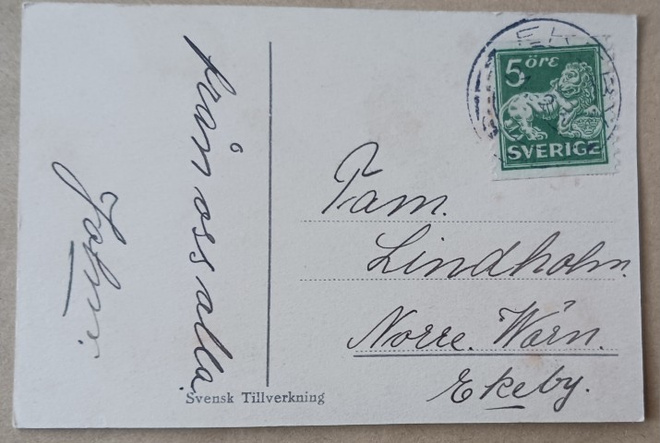 från oss alla
5 öre
SVERIGE
Fam.
Lindholm.
Norre. Wärn.
Ekeby.
Svensk Tillverkning